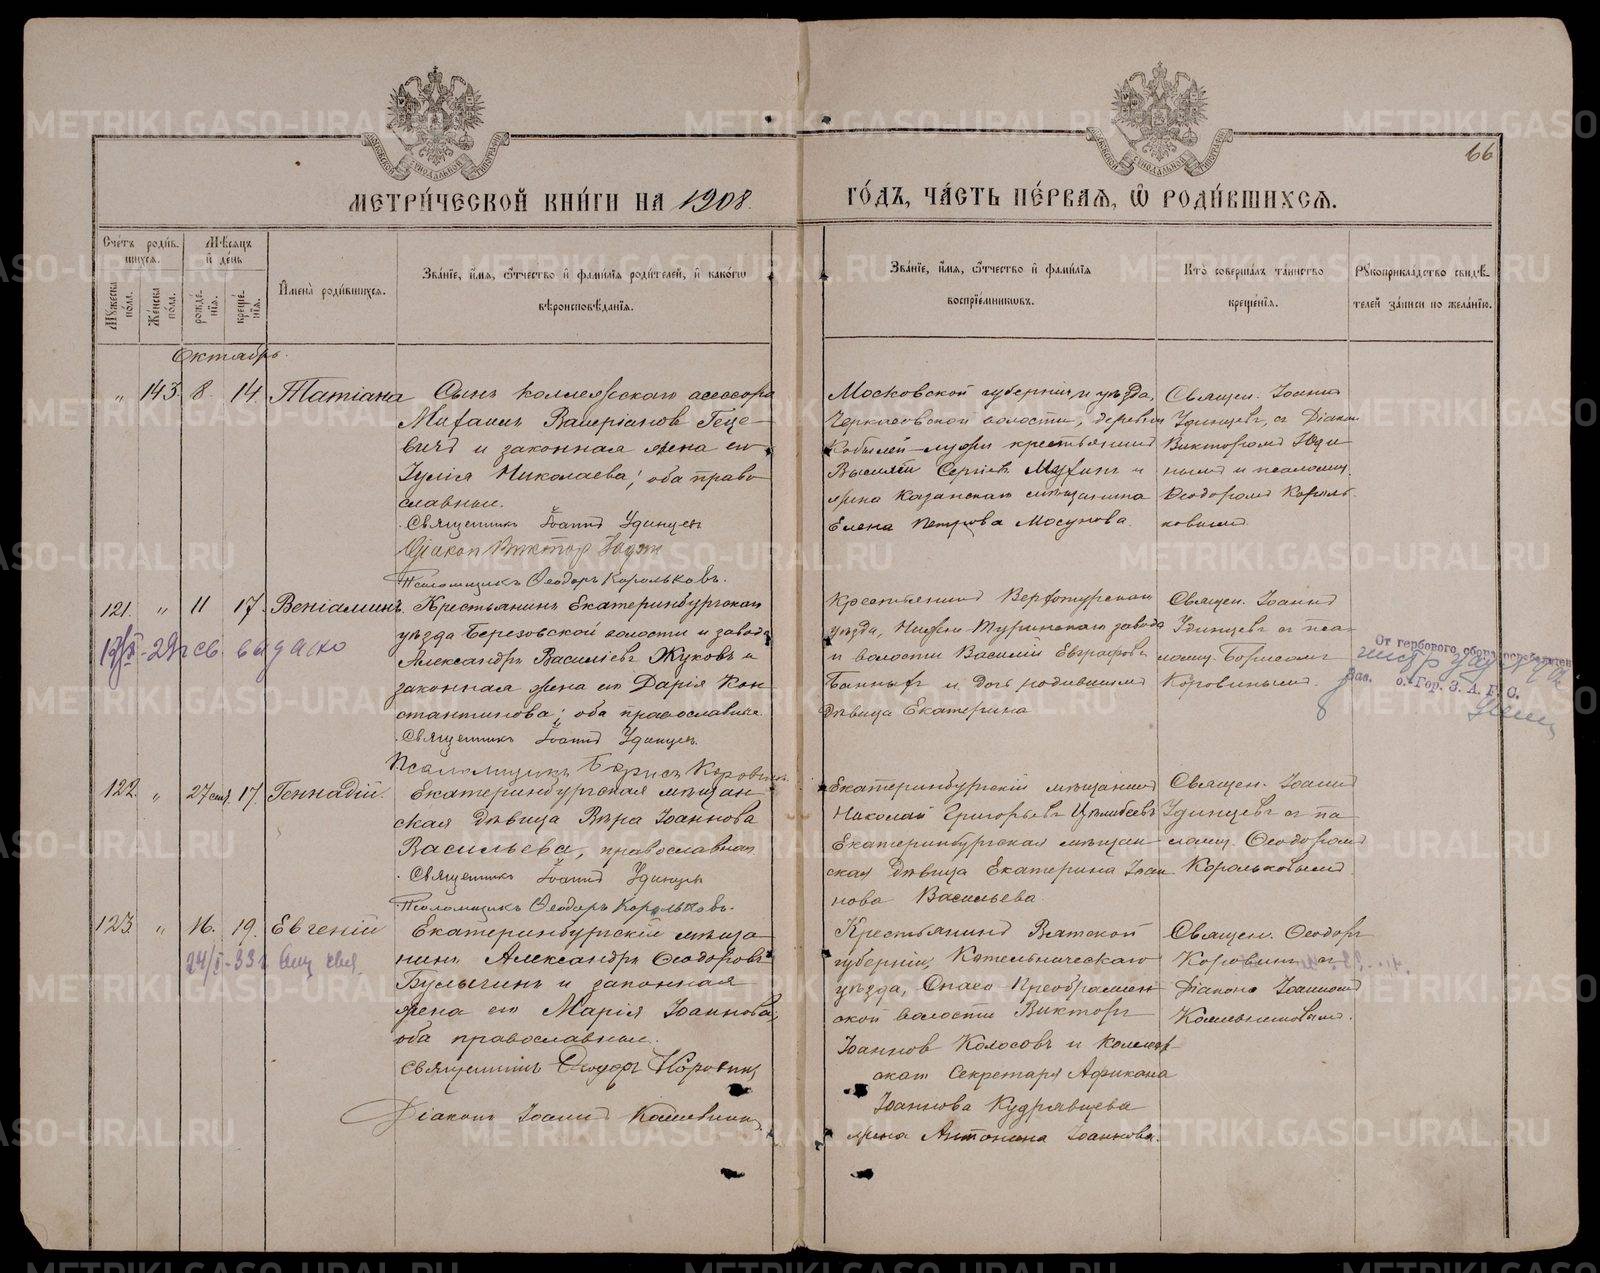 МЕТРИ́ЧЕСКОЙ КНИ́ГИ НА 1908
ГО́ДЪ, ЧА́СТЬ ПЕ́РВАЯ, Ѡ РОДИ́ВШИХСЯ.
66
Сче́тъ роди́в-
шихся.
Мѣ́сяцъ
и де́нь
Мꙋ́жеска
по́ла.
Же́нска
по́ла.
рожде́-
нїѧ.
креще́-
нїѧ.
И́мена роди́вшихся.
Зва́нїе, и́мѧ, ѻ҆́тчество и҆ фами́лїѧ роди́телей, и҆ како́гѡ
вѣроисповѣ́данїѧ.
Зва́нїе, и́мѧ, ѻ҆́тчество и҆ фами́лїѧ
воспрїе́мникѡвъ.
Кто̀ соверша́лъ та́инство
креще́нїѧ.
Рꙋкоприкла́дство свидѣ́-
телей за́писи по жела́нїю.
Октябрь.
„ 143 8. 14. Татіана
Сынъ коллежскаго асессора
Михаилъ Валеріановъ Геце-
вичъ и законная жена его
Іулія Николаева; оба право
славные.
Священникъ Іоаннъ Удинцевъ
Діаконъ Викторъ
Псаломщикъ Ѳеодоръ Корольковъ.
Московской губерніи и уѣзда,
Черкизовской волости, деревни
крестьянинъ
Василій Сергіевъ Мухинъ и
жена Казанскаго мѣщанина
Елена Петрова Мосунова.
Священ. Іоаннъ
Удинцевъ, съ Діакон
Викторомъ
нымъ и псаломщ.
Ѳеодоромъ Король
ковымъ.
121. „ 11 17. Веніаминъ.
Крестьянинъ Екатеринбургскаго
уѣзда Березовской волости и завода
Александръ Василіевъ Жуковъ и
законная жена его Дарія Кон
стантинова; оба православные.
Священникъ Іоаннъ Удинцевъ.
Псаломщикъ Борисъ Коровинъ
св. выдано
Крестьянинъ Верхотурскаго
уѣзда, Нижне-Туринскаго завода
и волости Василій Евграфовъ
Банныхъ и дочь родившаго
дѣвица Екатерина
Священ. Іоаннъ
Удинцевъ съ пса-
ломщ. Борисомъ
Коровинымъ.
От гербового сбора
Гор. З. А. Г. С.
122. „ 27 сент. 17. Геннадій.
Екатеринбургская мѣщан
ская дѣвица Вѣра Іоаннова
Васильева, православная.
Священникъ Іоаннъ Удинцевъ
Псаломщикъ Ѳеодоръ Корольковъ.
Екатеринбургскій мѣщанинъ
Николай Григорьевъ
Екатеринбургская мѣщан
ская дѣвица Екатерина Іоан
нова Васильева.
Священ. Іоаннъ
Удинцевъ съ пса
ломщ. Ѳеодоромъ
Корольковымъ.
123. „ 16. 19. Евгеній
24/I-33г.
Екатеринбургскій мѣща-
нинъ Александръ Ѳеодоровъ
Булычинъ и законная
жена его Марія Іоаннова;
оба православные.
Священникъ Ѳеодоръ Коровинъ
Діаконъ Іоаннъ
Крестьянинъ Вятской
губерніи, Котельническаго
уѣзда, Спасо-Преображен
ской волости Викторъ
Іоанновъ Колосовъ и коллеж
скаго Секретаря Африкана
Іоаннова Кудрявцева
жена Антонина Іоаннова.
Священ. Ѳеодоръ
Коровинъ съ
діакономъ Іоанномъ